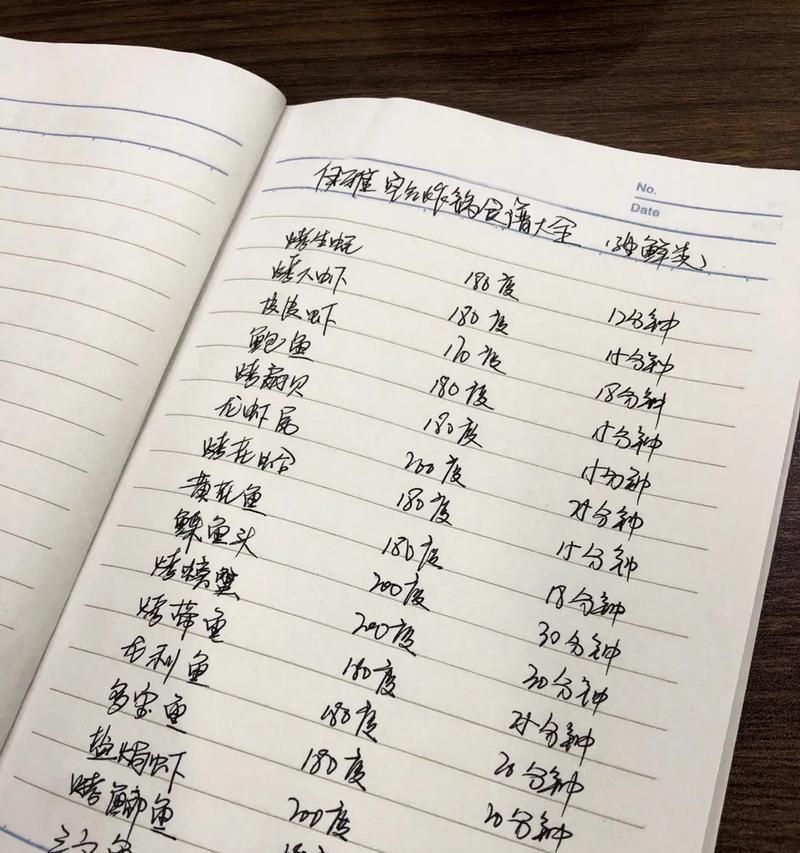 No.
Date
保雅空气炸锅食谱大全(海鲜类)
烤生蚝 180度 12分钟
烤大虾 180度 15分钟
皮皮虾 度 18分钟
鲍鱼 180度 15分钟
烤扇贝 180度 15分钟
龙虾尾 200度 25分钟
烤花蛤 180度 15分钟
黄花鱼 180度 18分钟
鲽鱼头 200度 30分钟
烤螃蟹 200度 30分钟
烤带鱼 180度 25分钟
龙利鱼 180度 20分钟
多宝鱼 180度 20分钟
盐焗虾 200度
烤鲫鱼